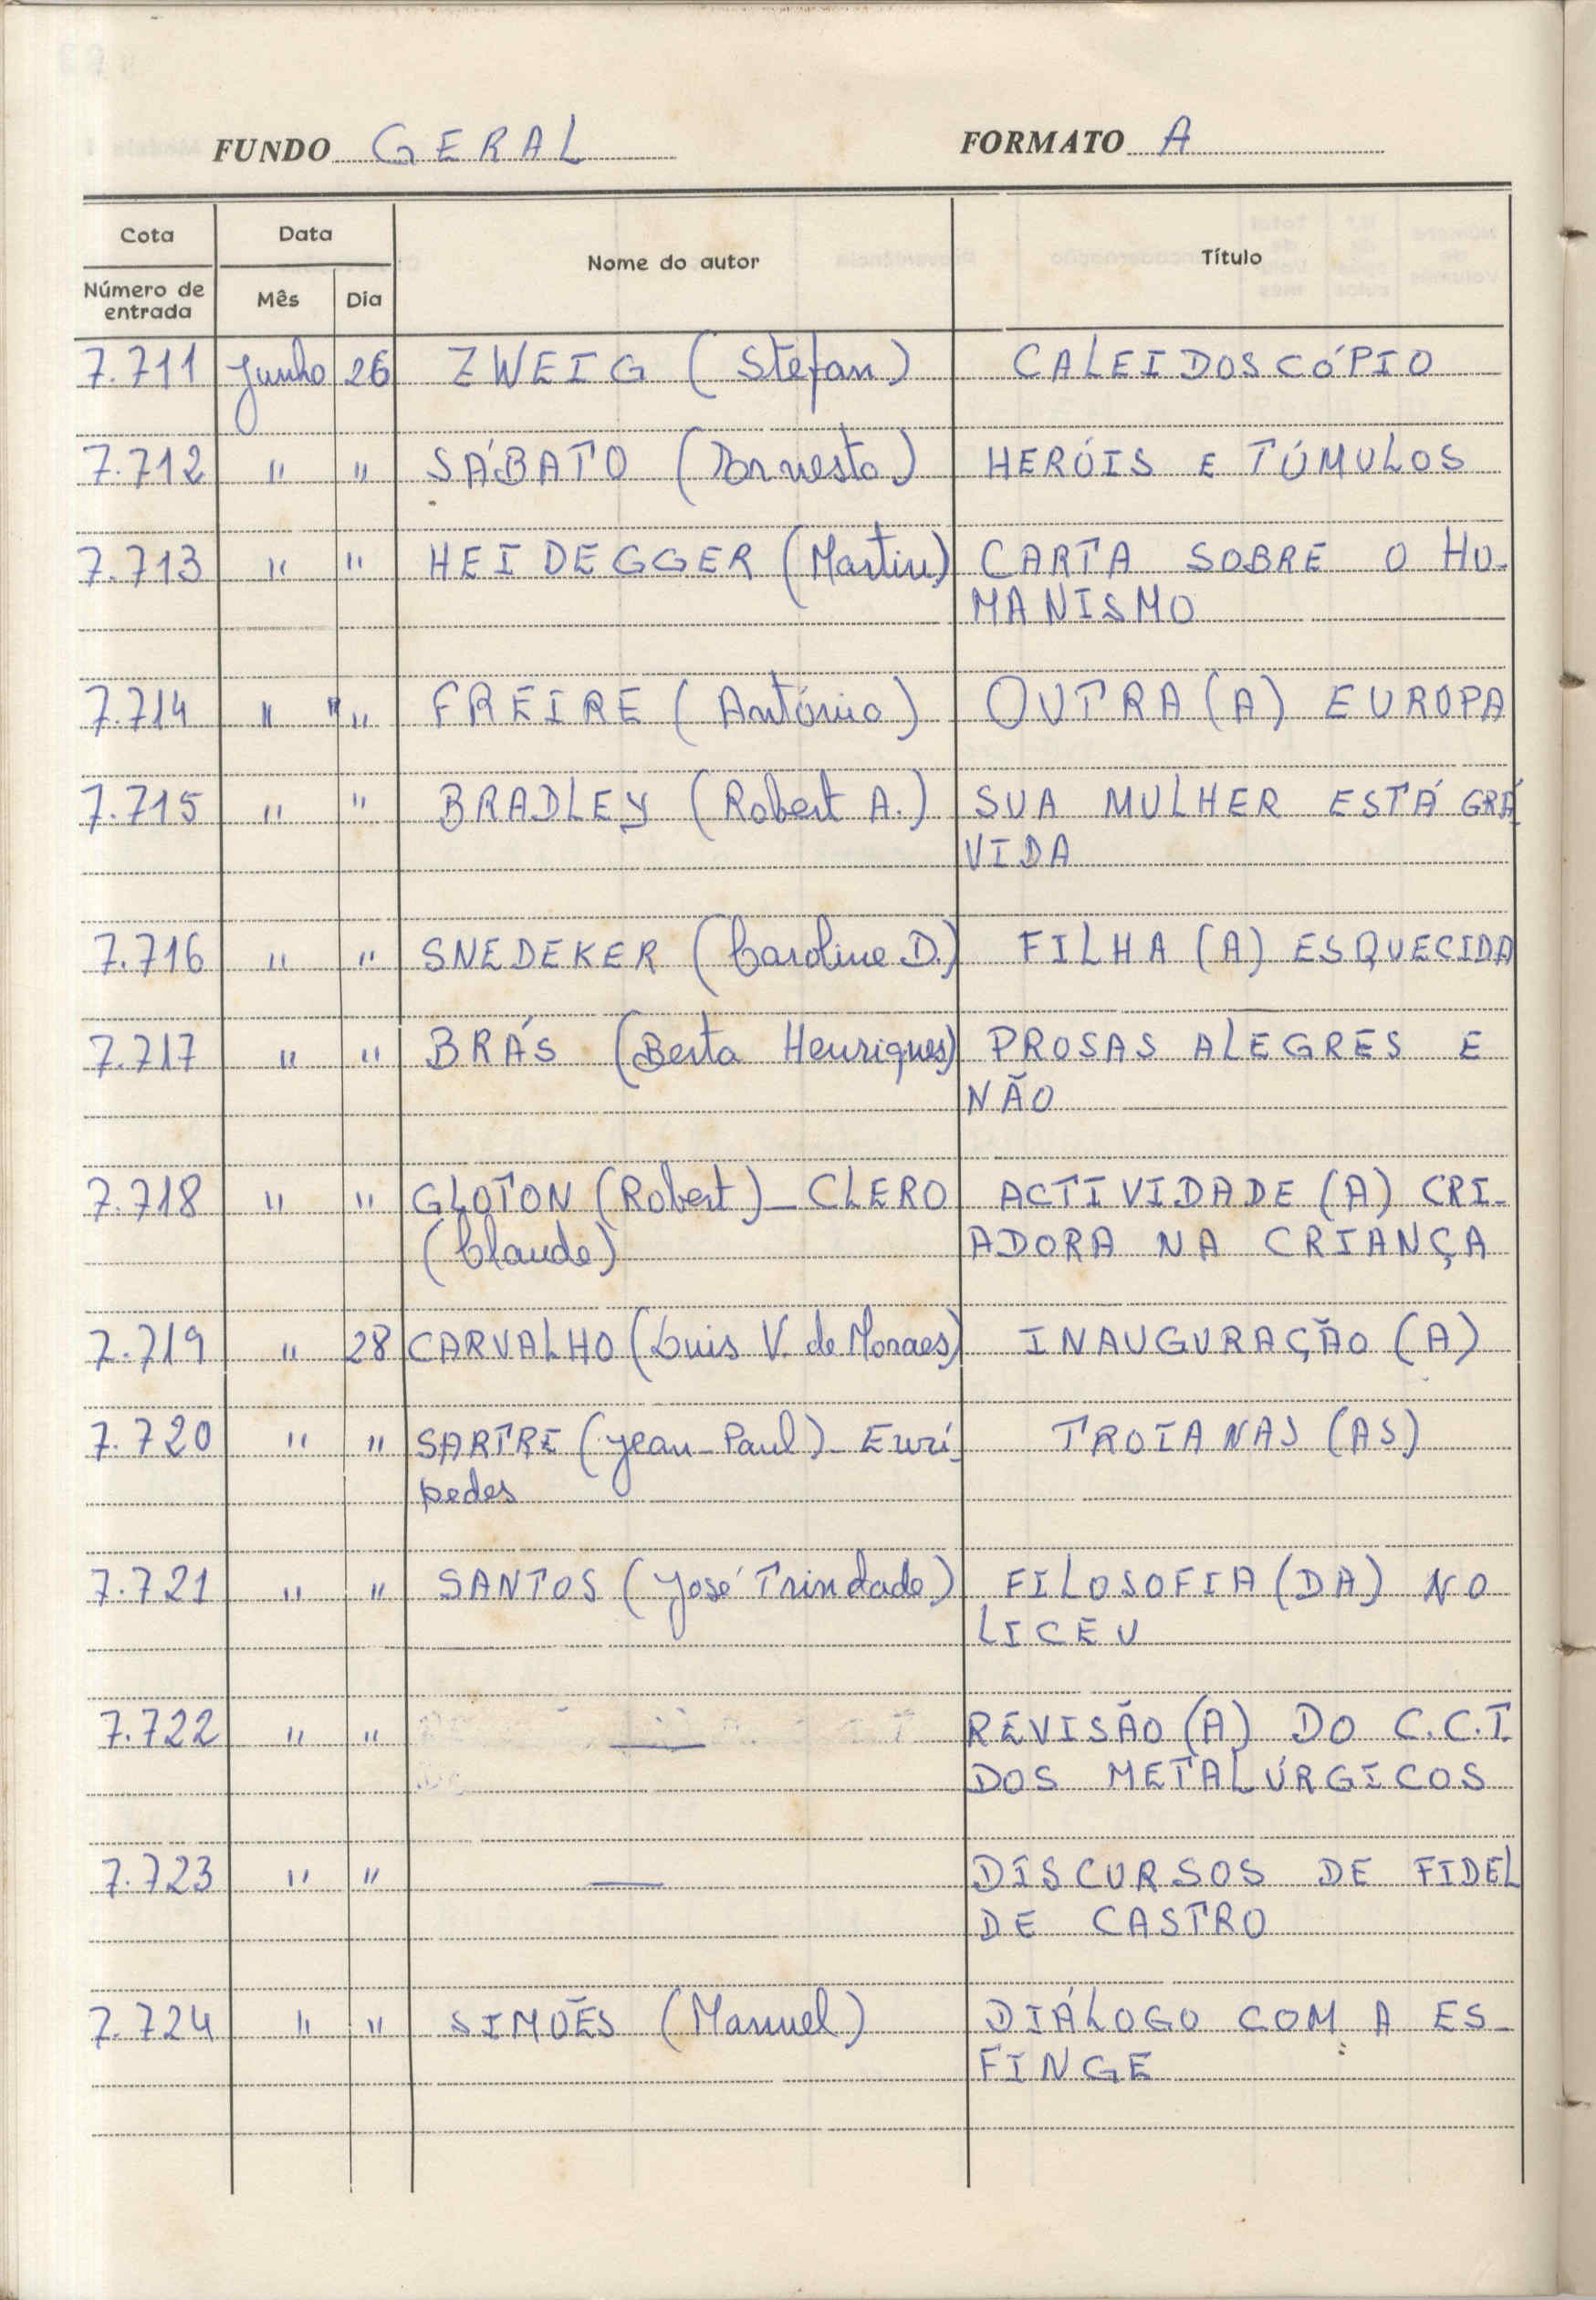 FUNDO GERAL FORMATO A
Cota Data Nome do autor Título
Número de entrada Mês Dia
7.711 Junho 26 ZWEIG (Stefan) CALEIDOSCÓPIO
7.712 " " SÁBATO (Ernesto) HERÓIS E TÚMULOS
7.713 " " HEIDEGGER (Martin) CARTA SOBRE O HU-
MANISMO
7.714 " " " FREIRE (António) OUTRA (A) EUROPA
7.715 " " BRADLEY (Robert A.) SUA MULHER ESTÁ GRÁ
VIDA
7.716 " " SNEDEKER (Caroline D.) FILHA (A) ESQUECIDA
7.717 " " BRÁS (Berta Henriques) PROSAS ALEGRES E
NÃO
7.718 " " GLOTON (Robert) - CLERO ACTIVIDADE (A) CRI-
(Claude) ADORA NA CRIANÇA
7.719 " 28 CARVALHO (Luis V. de Moraes) INAUGURAÇÃO (A)
7.720 " " SARTRE (Jean-Paul) - Eurí- TROIANAS (AS)
pedes
7.721 " " SANTOS (José Trindade) FILOSOFIA (DA) NO
LICEU
7.722 " " — REVISÃO (A) DO C.C.T.
DOS METALÚRGICOS
7.723 " " — DISCURSOS DE FIDEL
DE CASTRO
7.724 " " SIMÕES (Manuel) DIÁLOGO COM A ES-
FINGE